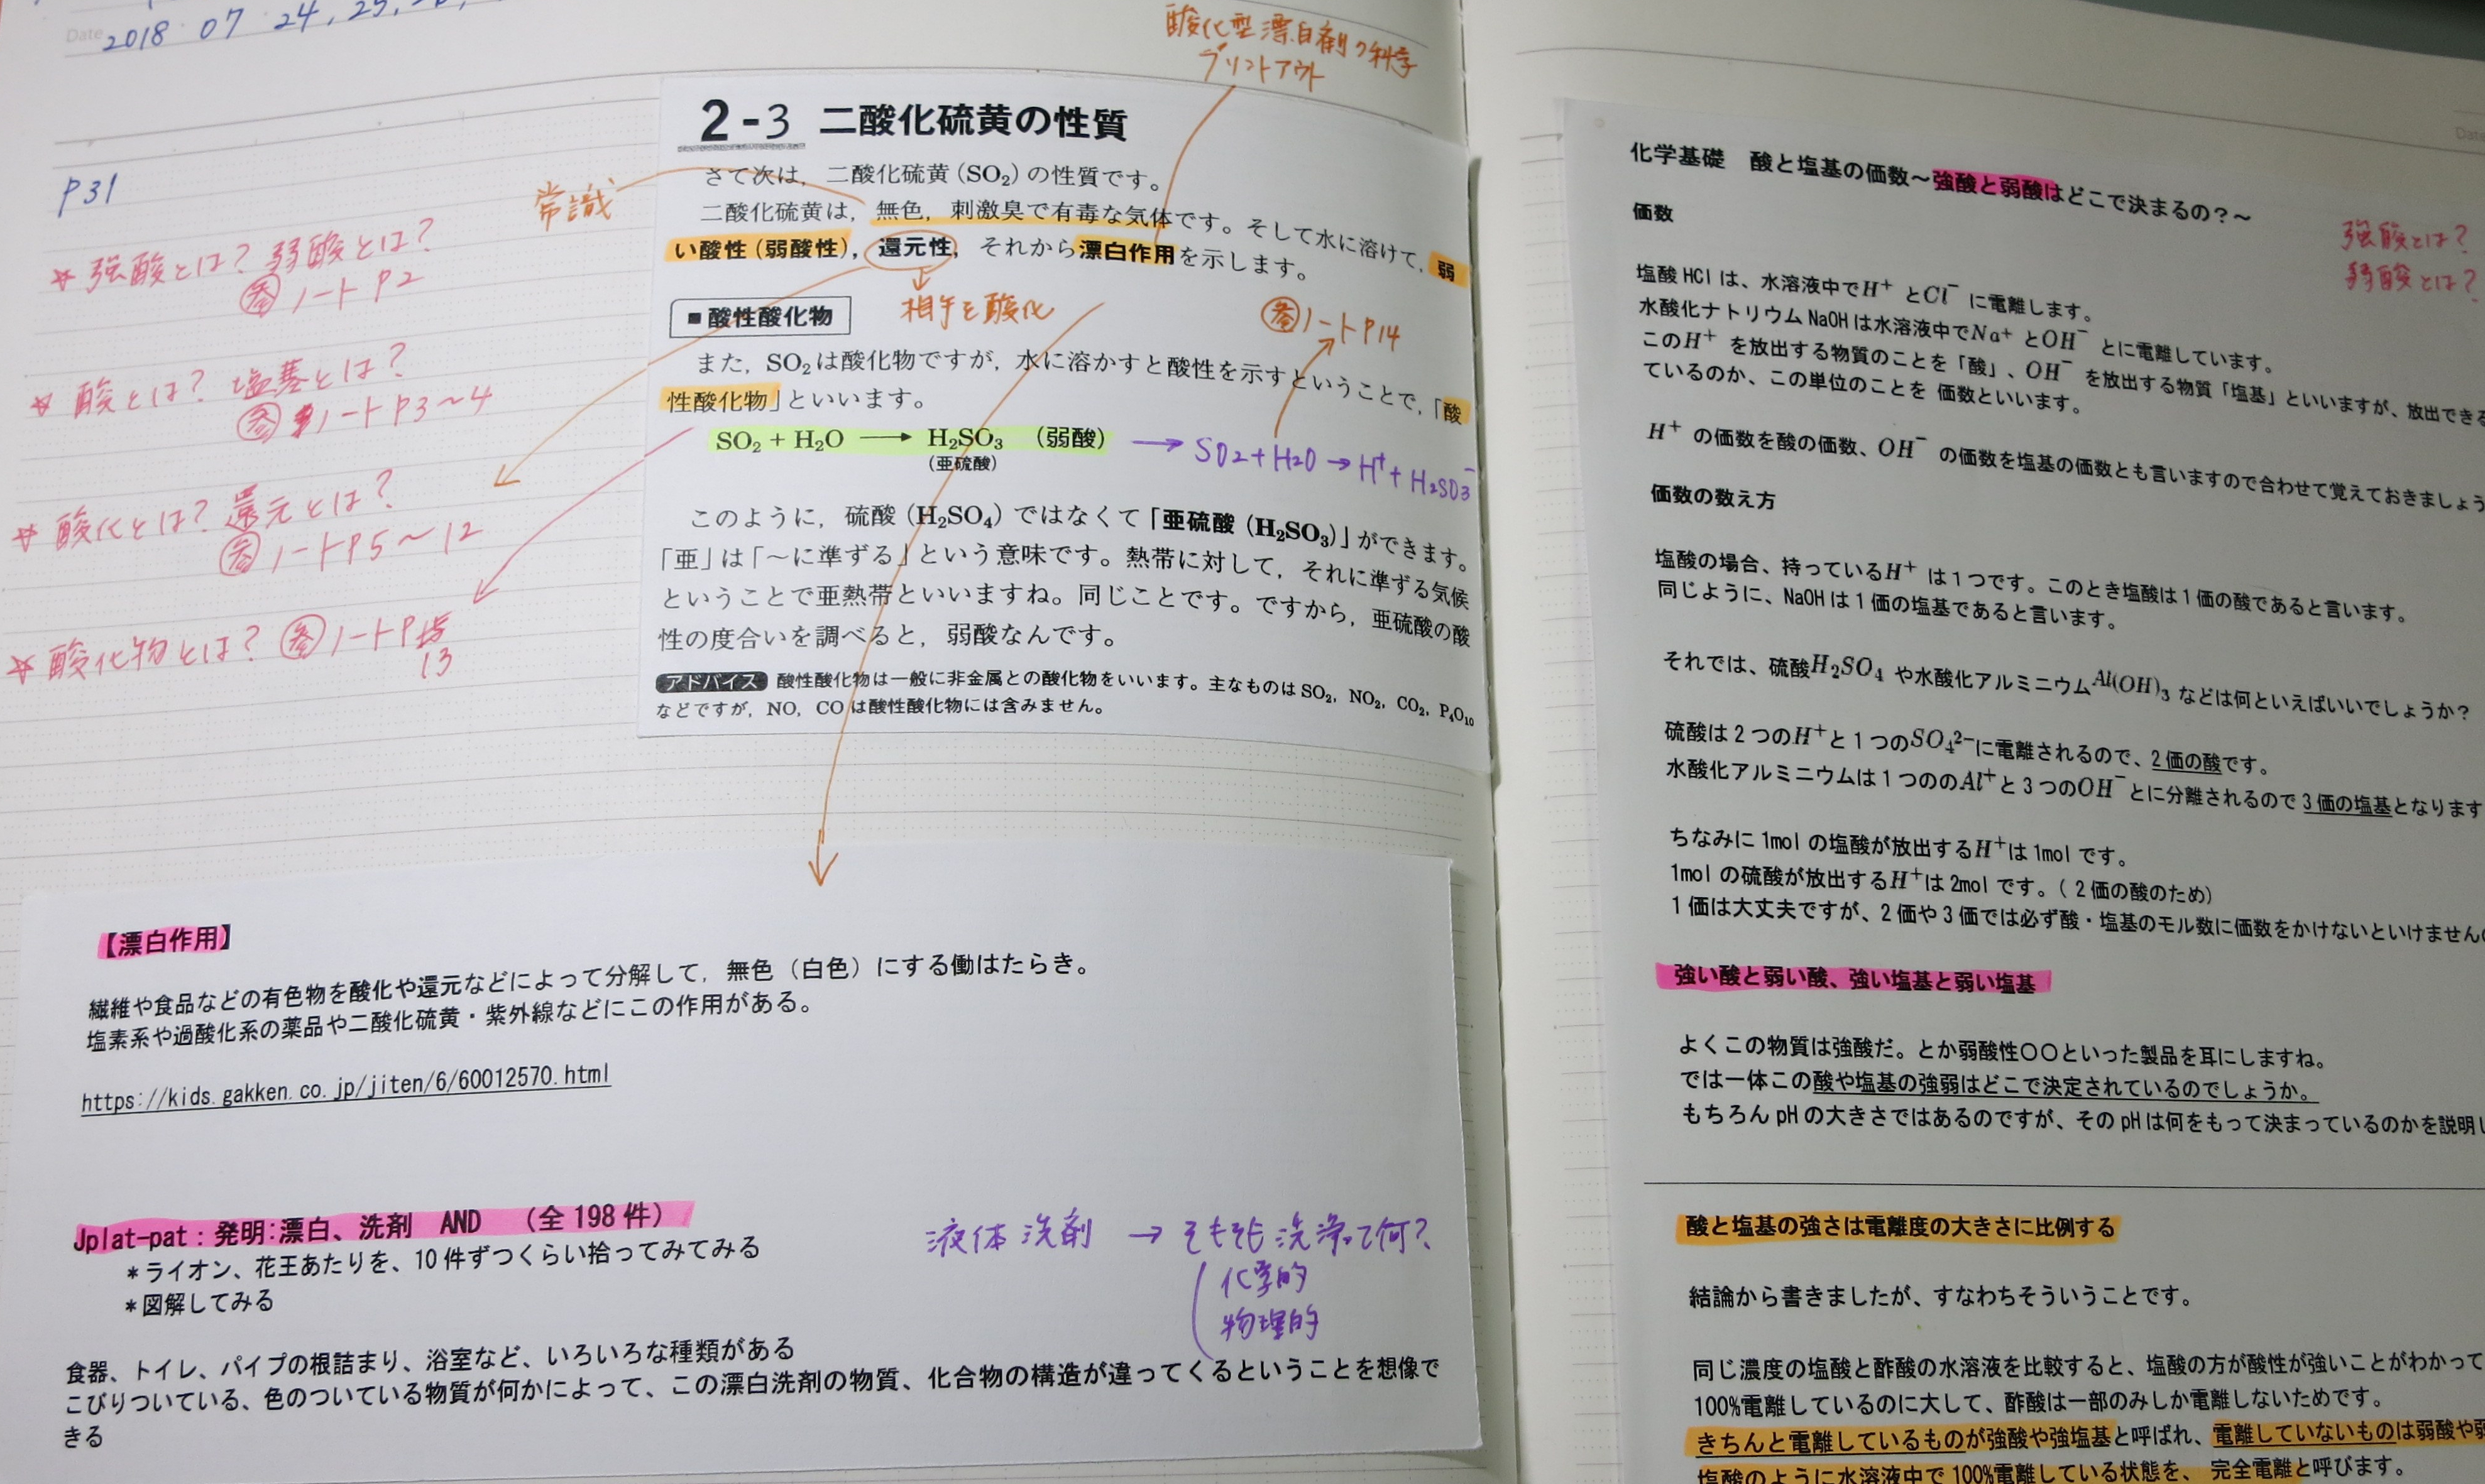 Date 2018 07 24, 25,
P31
酸化型漂白剤の科学
プリントアウト
常識
☆ 強酸とは? 弱酸とは?
参 ノート P2
☆ 酸とは? 塩基とは?
参 ノート P3〜4
☆ 酸化とは? 還元とは?
参 ノート P5〜12
☆ 酸化物とは? 参 ノート P
13
2-3 二酸化硫黄の性質
さて次は，二酸化硫黄(SO₂)の性質です。
二酸化硫黄は，無色，刺激臭で有毒な気体です。そして水に溶けて，弱
い酸性(弱酸性)，還元性，それから漂白作用を示します。
相手を酸化
■酸性酸化物
参 ノート P14
また，SO₂は酸化物ですが，水に溶かすと酸性を示すということで，「酸
性酸化物」といいます。
SO₂ + H₂O ⟶ H₂SO₃ (弱酸) → SO₂+H₂O→H⁺+H₂SO₃⁻
(亜硫酸)
このように，硫酸(H₂SO₄)ではなくて「亜硫酸(H₂SO₃)」ができます。
「亜」は「〜に準ずる」という意味です。熱帯に対して，それに準ずる気候
ということで亜熱帯といいますね。同じことです。ですから，亜硫酸の酸
性の度合いを調べると，弱酸なんです。
アドバイス 酸性酸化物は一般に非金属との酸化物をいいます。主なものはSO₂, NO₂, CO₂, P₄O₁₀
などですが，NO, COは酸性酸化物には含みません。
【漂白作用】
繊維や食品などの有色物を酸化や還元などによって分解して，無色（白色）にする働はたらき。
塩素系や過酸化系の薬品や二酸化硫黄・紫外線などにこの作用がある。
https://kids.gakken.co.jp/jiten/6/60012570.html
Jplat-pat：発明:漂白、洗剤 AND （全198件）
＊ライオン、花王あたりを、10件ずつくらい拾ってみてみる
＊図解してみる
液体洗剤 → そもそも洗浄って何?
化学的
物理的
食器、トイレ、パイプの根詰まり、浴室など、いろいろな種類がある
こびりついている、色のついている物質が何かによって、この漂白洗剤の物質、化合物の構造が違ってくるということを想像で
きる
Date
化学基礎 酸と塩基の価数～強酸と弱酸はどこで決まるの？～
強酸とは?
弱酸とは?
価数
塩酸 HCl は、水溶液中でH⁺ とCl⁻ に電離します。
水酸化ナトリウム NaOH は水溶液中でNa⁺ とOH⁻ とに電離しています。
このH⁺ を放出する物質のことを「酸」、OH⁻ を放出する物質「塩基」といいますが、放出できる
ているのか、この単位のことを 価数といいます。
H⁺ の価数を酸の価数、OH⁻ の価数を塩基の価数とも言いますので合わせて覚えておきましょう
価数の数え方
塩酸の場合、持っているH⁺ は１つです。このとき塩酸は１価の酸であると言います。
同じように、NaOH は１価の塩基であると言います。
それでは、硫酸H₂SO₄ や水酸化アルミニウムAl(OH)₃ などは何といえばいいでしょうか？
硫酸は２つのH⁺と１つのSO₄²⁻に電離されるので、２価の酸です。
水酸化アルミニウムは１つののAl⁺と３つのOH⁻ とに分離されるので３価の塩基となります
ちなみに 1mol の塩酸が放出するH⁺は 1mol です。
1mol の硫酸が放出するH⁺は 2mol です。（２価の酸のため）
１価は大丈夫ですが、２価や３価では必ず酸・塩基のモル数に価数をかけないといけません
強い酸と弱い酸、強い塩基と弱い塩基
よくこの物質は強酸だ。とか弱酸性〇〇といった製品を耳にしますね。
では一体この酸や塩基の強弱はどこで決定されているのでしょうか。
もちろん pH の大きさではあるのですが、その pH は何をもって決まっているのかを説明し
酸と塩基の強さは電離度の大きさに比例する
結論から書きましたが、すなわちそういうことです。
同じ濃度の塩酸と酢酸の水溶液を比較すると、塩酸の方が酸性が強いことがわかって
100%電離しているのに大して、酢酸は一部のみしか電離しないためです。
きちんと電離しているものが強酸や強塩基と呼ばれ、電離していないものは弱酸や弱
塩酸のように水溶液中で 100%電離している状態を、 完全電離と呼びます。